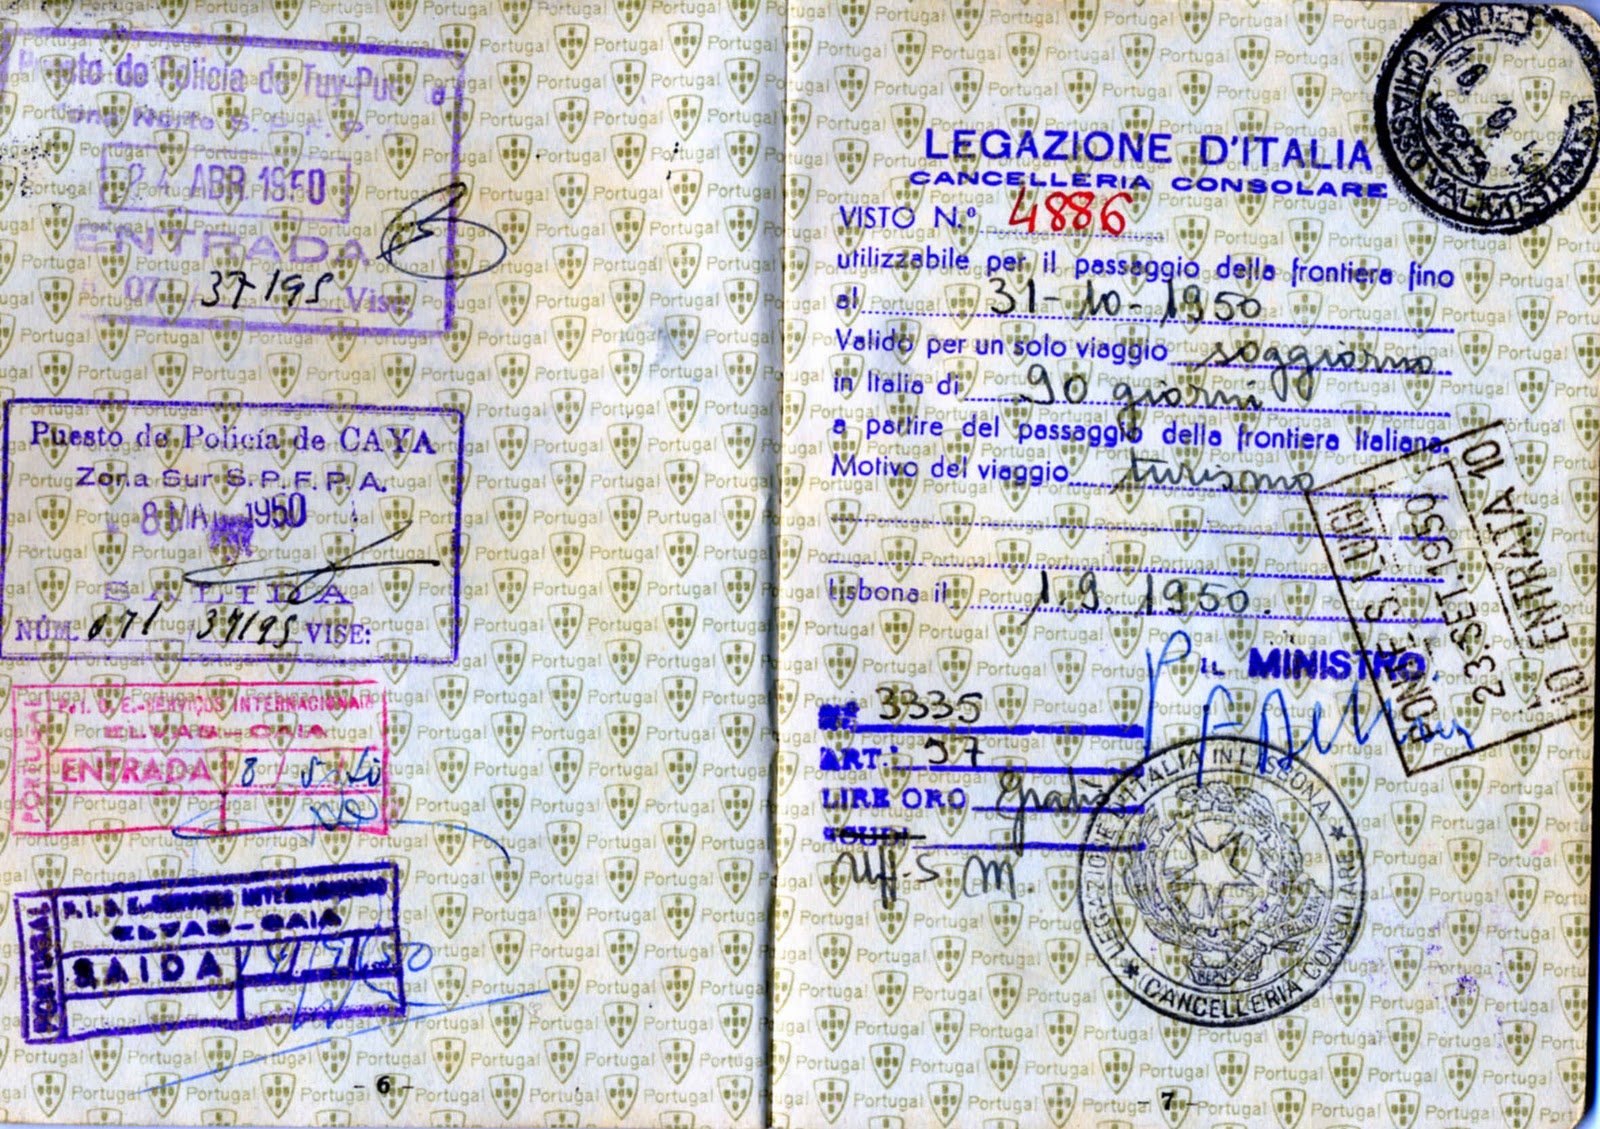 Puesto de Policía de Tuy-Pue
Zona Norte S. P. F. P.
24 ABR 1950
ENTRADA
07 37195 Vise:
Puesto de Policía de CAYA
Zona Sur S.P.F.P.A.
8 MA 1950
SALIDA
NÚM. 071 37195 VISE:
PORTUGAL
P. I. D. E.-SERVIÇOS INTERNACIONAIS
ELVAS-CAIA
ENTRADA 8 5
PORTUGAL
P. I. D. E.-SERVIÇOS INTERNACIONAIS
ELVAS-CAIA
SAIDA 50
- 6 -
LEGAZIONE D'ITALIA
CANCELLERIA CONSOLARE
VISTO N.º 4886
utilizzabile per il passaggio della frontiera fino
al 31-10-1950
Valido per un solo viaggio soggiorno
in Italia di 90 giorni
a partire del passaggio della frontiera Italiana.
Motivo del viaggio turismo
Lisbona il 1.9.1950.
P IL MINISTRO.
Nº 3335
ART. 57
LIRE ORO gratis
LEGAZIONE D'ITALIA IN LISBONA
CANCELLERIA CONSOLARE
PONTE S. LUIGI
23. SET. 1950
ENTRATA 10
CHIASSO VALICO STRADALE
- 7 -